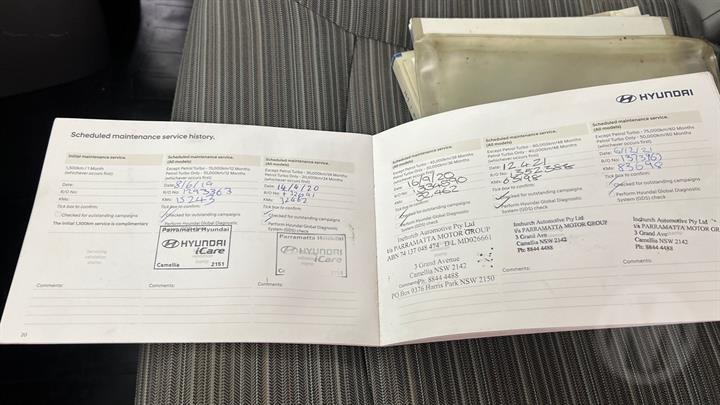 Scheduled maintenance service history.
Initial maintenance service
1,500km/1 Month
(whichever occurs first)
Date:
R/O No:
KMs:
Tick box to confirm:
Checked for outstanding campaigns
The initial 1,500km service is complimentary
Servicing
validation
stamp
Comments:
20
Scheduled maintenance service.
(All models)
Except Petrol Turbo - 15,000km/12 Months
Petrol Turbo Only - 10,000km/12 Months
(whichever occurs first)
Date: 8/6/19
R/O No: 1293363
KMs: 15243
Tick box to confirm:
Checked for outstanding campaigns
Perform Hyundai Global Diagnostic
System (GDS) check
Parramatta Hyundai
HYUNDAI
iCare
Camellia 2151
Comments:
Scheduled maintenance service.
(All models)
Except Petrol Turbo - 30,000km/24 Months
Petrol Turbo Only - 20,000km/24 Months
(whichever occurs first)
Date: 14/4/20
R/O No:
KMs:
Tick box to confirm:
Checked for outstanding campaigns
Perform Hyundai Global Diagnostic
System (GDS) check
Parramatta Hyundai
HYUNDAI
iCare
Comments:
HYUNDAI
Scheduled maintenance service.
(All models)
Except Petrol Turbo - 45,000km/36 Months
Petrol Turbo Only - 30,000km/36 Months
(whichever occurs first)
Date: 16/9/20
R/O No:
KMs:
Tick box to confirm:
Checked for outstanding campaigns
Perform Hyundai Global Diagnostic
System (GDS) check
Inchurch Automotive Pty Ltd
t/a PARRAMATTA MOTOR GROUP
ABN 74 137 048 474 D-L MD026661
3 Grand Avenue
Camellia NSW 2142
Ph: 8844 4488
PO Box 9376 Harris Park NSW 2150
Comments:
Scheduled maintenance service.
(All models)
Except Petrol Turbo - 60,000km/48 Months
Petrol Turbo Only - 40,000km/48 Months
(whichever occurs first)
Date: 12.4.21
R/O No:
KMs: 65198
Tick box to confirm:
Checked for outstanding campaigns
Perform Hyundai Global Diagnostic
System (GDS) check
Inchurch Automotive Pty Ltd
t/a PARRAMATTA MOTOR GROUP
3 Grand Ave
Camellia NSW 2142
Ph: 8844 4488
Comments:
Scheduled maintenance service.
(All models)
Except Petrol Turbo - 75,000km/60 Months
Petrol Turbo Only - 50,000km/60 Months
(whichever occurs first)
Date: 6/12/21
R/O No:
KMs:
Tick box to confirm:
Checked for outstanding campaigns
Perform Hyundai Global Diagnostic
System (GDS) check
Inchurch Automotive Pty Ltd
t/a PARRAMATTA MOTOR GROUP
3 Grand Ave
Camellia NSW 2142
Ph: 8844 4488
Comments: